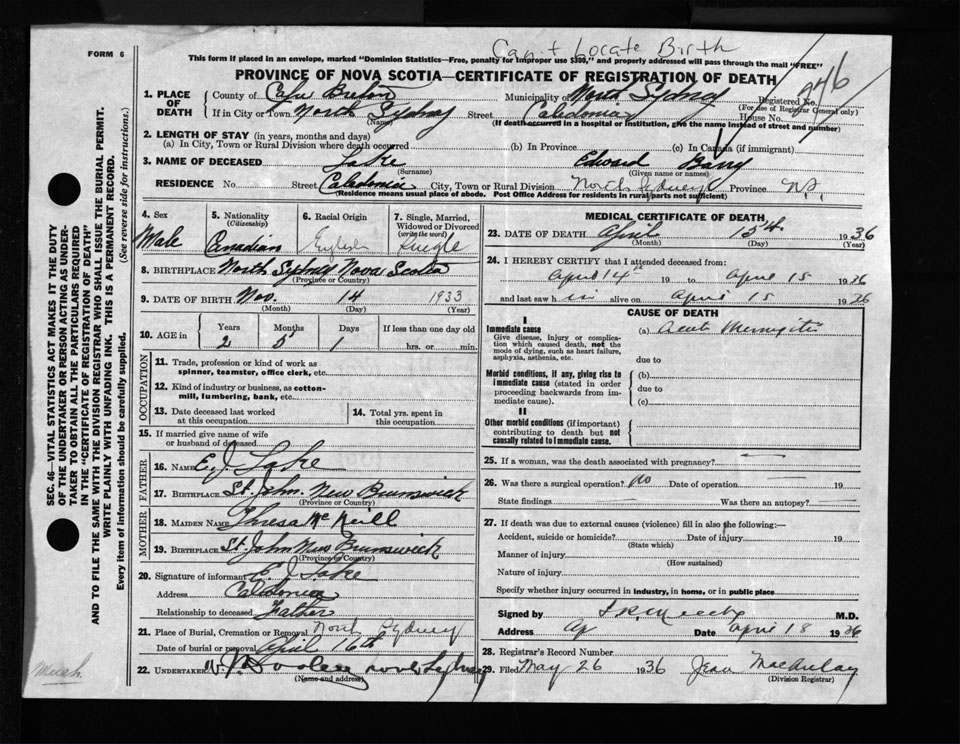 Can't Locate Birth
FORM 6
This form if placed in an envelope, marked "Dominion Statistics—Free, penalty for improper use $300," and properly addressed will pass through the mail "FREE"
PROVINCE OF NOVA SCOTIA—CERTIFICATE OF REGISTRATION OF DEATH
1. PLACE OF DEATH
County of Cape Breton Municipality of North Sydney Registered No.
(For use of Registrar General only)
If in City or Town North Sydney Street Caledonia House No.
(Name) (If death occurred in a hospital or institution, give the name instead of street and number)
2. LENGTH OF STAY (in years, months and days)
(a) In City, Town or Rural Division where death occurred (b) In Province (c) In Canada (if immigrant)
3. NAME OF DECEASED Lake Edward Barry
(Surname) (Given name or names)
RESIDENCE No. Street Caledonia City, Town or Rural Division North Sydney Province N.S.
(Residence means usual place of abode. Post Office Address for residents in rural parts not sufficient)
4. Sex Male
5. Nationality (Citizenship) Canadian
6. Racial Origin English
7. Single, Married, Widowed or Divorced (write the word) Single
8. BIRTHPLACE North Sydney Nova Scotia
(Province or Country)
9. DATE OF BIRTH Nov. 14 1933
(Month) (Day) (Year)
10. AGE in Years Months Days If less than one day old
2 5 1 hrs. or min.
OCCUPATION
11. Trade, profession or kind of work as spinner, teamster, office clerk, etc.
12. Kind of industry or business, as cotton-mill, lumbering, bank, etc.
13. Date deceased last worked at this occupation
14. Total yrs. spent in this occupation
15. If married give name of wife or husband of deceased
FATHER
16. NAME E. J. Lake
17. BIRTHPLACE St. John. New Brunswick
(Province or Country)
MOTHER
18. MAIDEN NAME Theresa McNeill
19. BIRTHPLACE St. John New Brunswick
(Province or Country)
20. Signature of informant E. J. Lake
Address Caledonia
Relationship to deceased Father
21. Place of Burial, Cremation or Removal North Sydney
Date of burial or removal April 16th
22. UNDERTAKER
(Name and address)
MEDICAL CERTIFICATE OF DEATH
23. DATE OF DEATH April 15th 1936
(Month) (Day) (Year)
24. I HEREBY CERTIFY that I attended deceased from:
April 14 19 to April 15 1936
and last saw him alive on April 15 1936
CAUSE OF DEATH
I
Immediate cause
Give disease, injury or complication which caused death, not the mode of dying, such as heart failure, asphyxia, asthenia, etc.
(a) Acute Meningitis
due to
Morbid conditions, if any, giving rise to immediate cause (stated in order proceeding backwards from immediate cause).
(b)
due to
(c)
II
Other morbid conditions (if important) contributing to death but not causally related to immediate cause.
25. If a woman, was the death associated with pregnancy?
26. Was there a surgical operation? no Date of operation 19
State findings Was there an autopsy?
27. If death due to external causes (violence) fill in also the following:—
Accident, suicide or homicide? Date of injury 19
(State which)
Manner of injury
(How sustained)
Nature of injury
Specify whether injury occurred in industry, in home, or in public place
Signed by M.D.
Address Date April 18 1936
28. Registrar's Record Number
29. Filed May 26 1936 Jean MacAulay
(Division Registrar)
SEC. 46—VITAL STATISTICS ACT MAKES IT THE DUTY
OF THE UNDERTAKER OR PERSON ACTING AS UNDER-
TAKER TO OBTAIN ALL THE PARTICULARS REQUIRED
IN THE "CERTIFICATE OF REGISTRATION OF DEATH"
AND TO FILE THE SAME WITH THE DIVISION REGISTRAR WHO SHALL ISSUE THE BURIAL PERMIT.
WRITE PLAINLY WITH UNFADING INK. THIS IS A PERMANENT RECORD.
Every item of information should be carefully supplied. (See reverse side for instructions.)